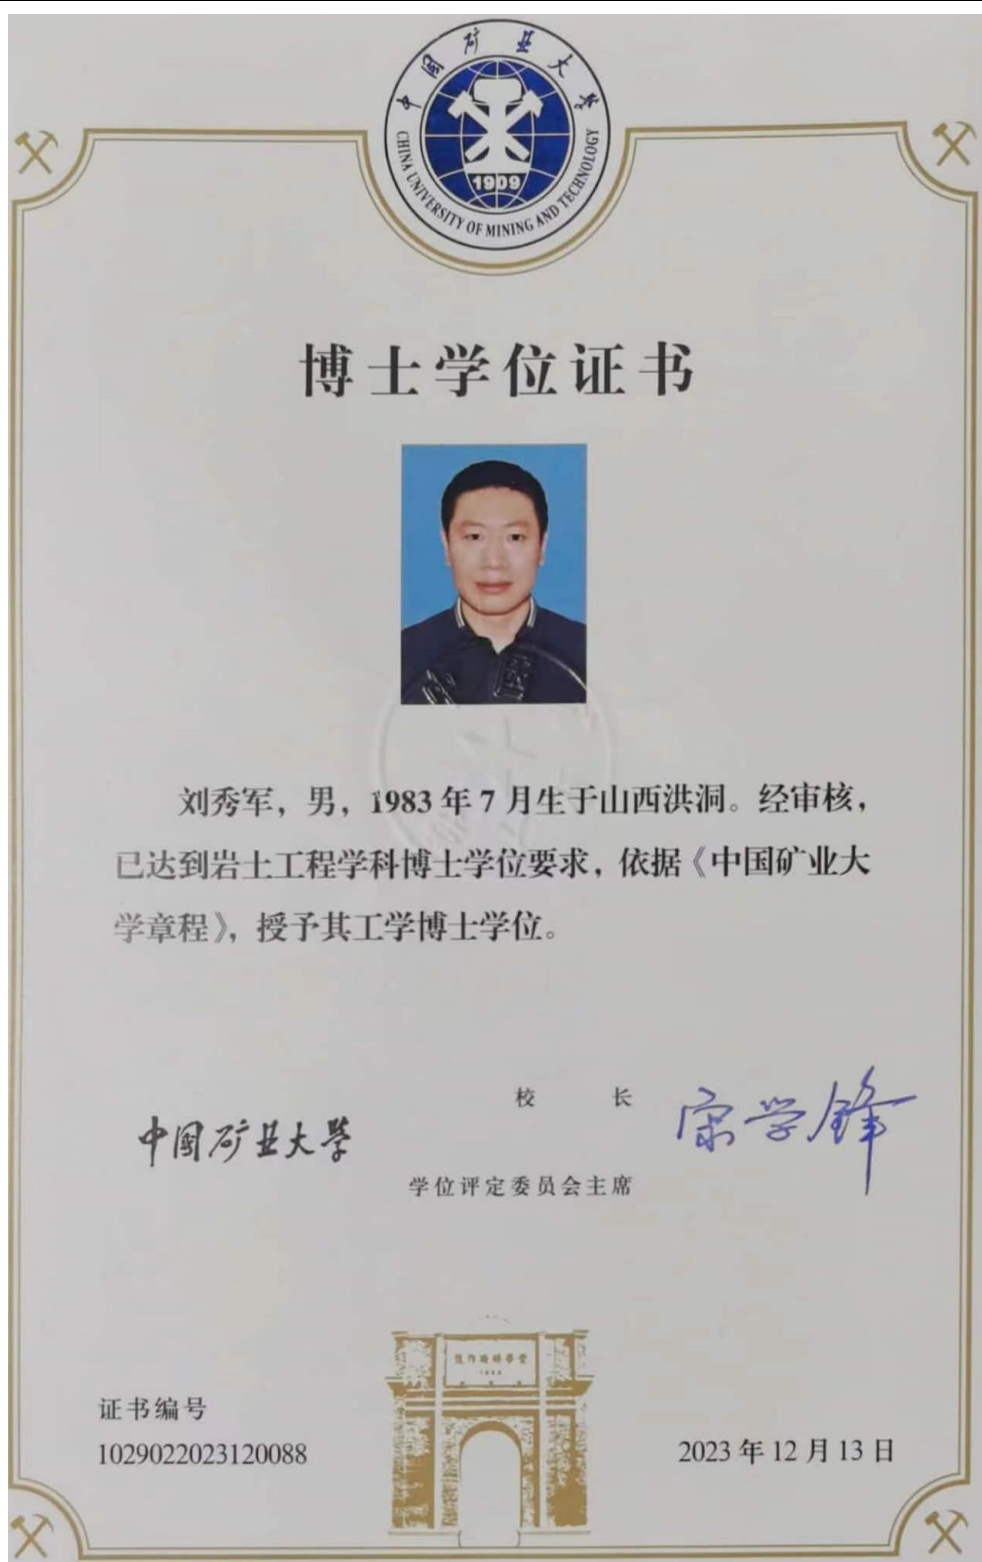 中国矿业大学
CHINA UNIVERSITY OF MINING AND TECHNOLOGY
1909
博士学位证书
刘秀军，男，1983 年 7 月生于山西洪洞。经审核，
已达到岩土工程学科博士学位要求，依据《中国矿业大
学章程》，授予其工学博士学位。
校 长
宋学锋
中国矿业大学
学位评定委员会主席
焦作路矿学堂
证书编号
1029022023120088
2023 年 12 月 13 日